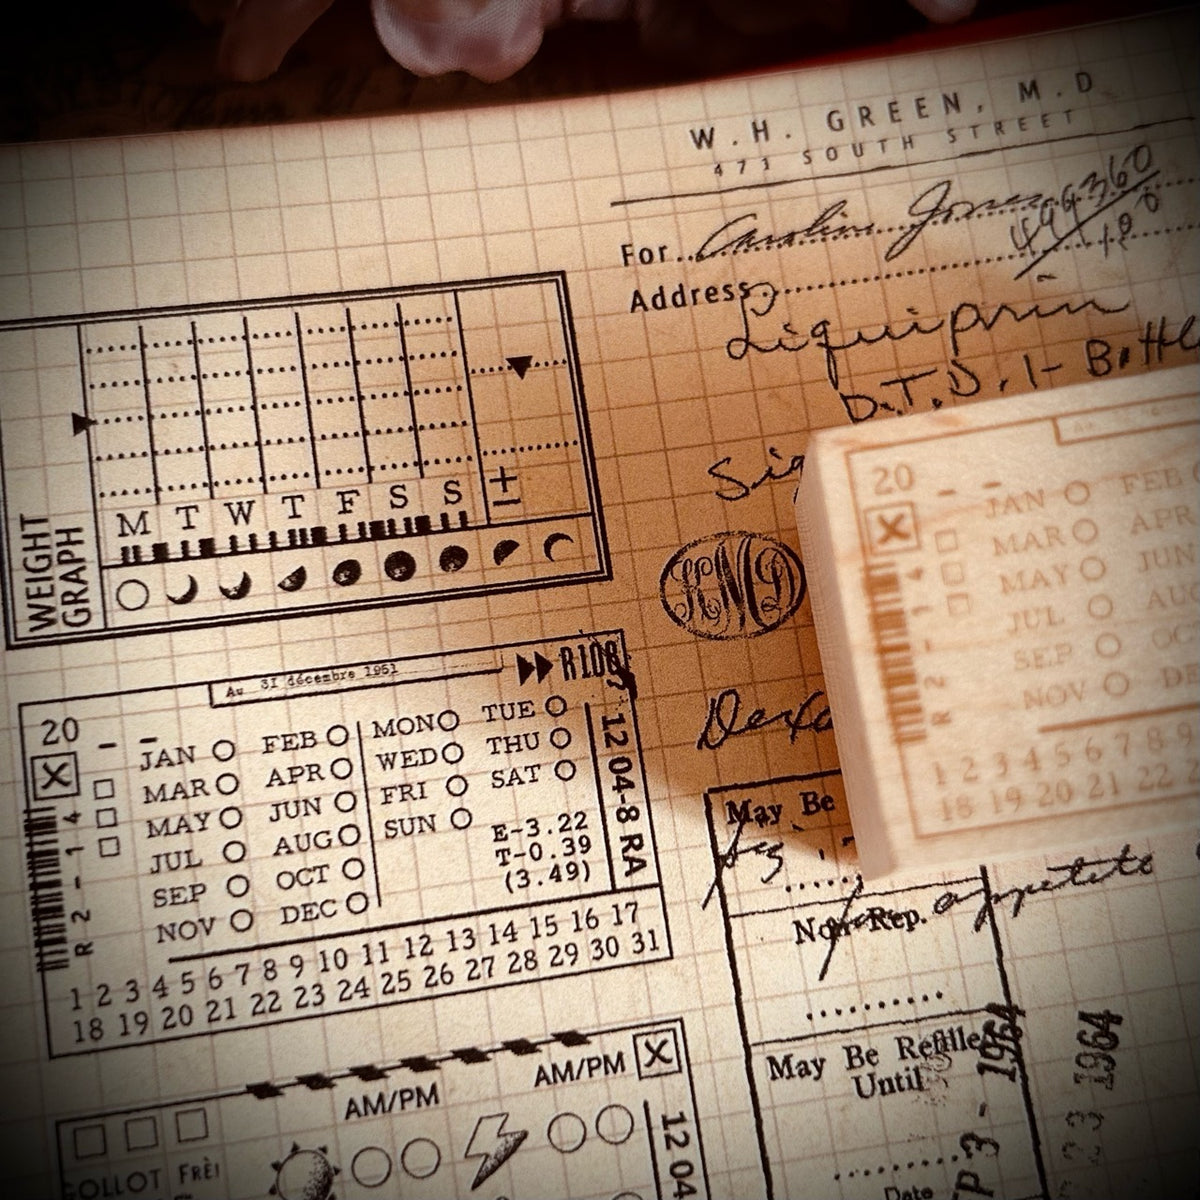 W. H. GREEN, M.D
471 SOUTH STREET
For
494360
Address
Liquiprin
D.T.D. 1- Bottle
WEIGHT
GRAPH
M T W T F S S ±
Au 31 décembre 1951
R108
20 _ _
X
JAN FEB MON TUE
MAR APR WED THU
MAY JUN FRI SAT
JUL AUG SUN
SEP OCT
NOV DEC
E-3.22
T-0.39
(3.49)
12 04-8 RA
R 2 - 1 4
1 2 3 4 5 6 7 8 9 10 11 12 13 14 15 16 17
18 19 20 21 22 23 24 25 26 27 28 29 30 31
20 _ _
X
JAN FEB
MAR APR
MAY JUN
JUL AUG
SEP OC
NOV DE
R 2 - 1 4
1 2 3 4 5 6 7 8 9
18 19 20 21 22 2
May Be
Non-Rep.
appetite
May Be Refille
Until
1964
P 3 -
2 3 1964
Date
AM/PM AM/PM X
OLLOT FRÈI
12 04